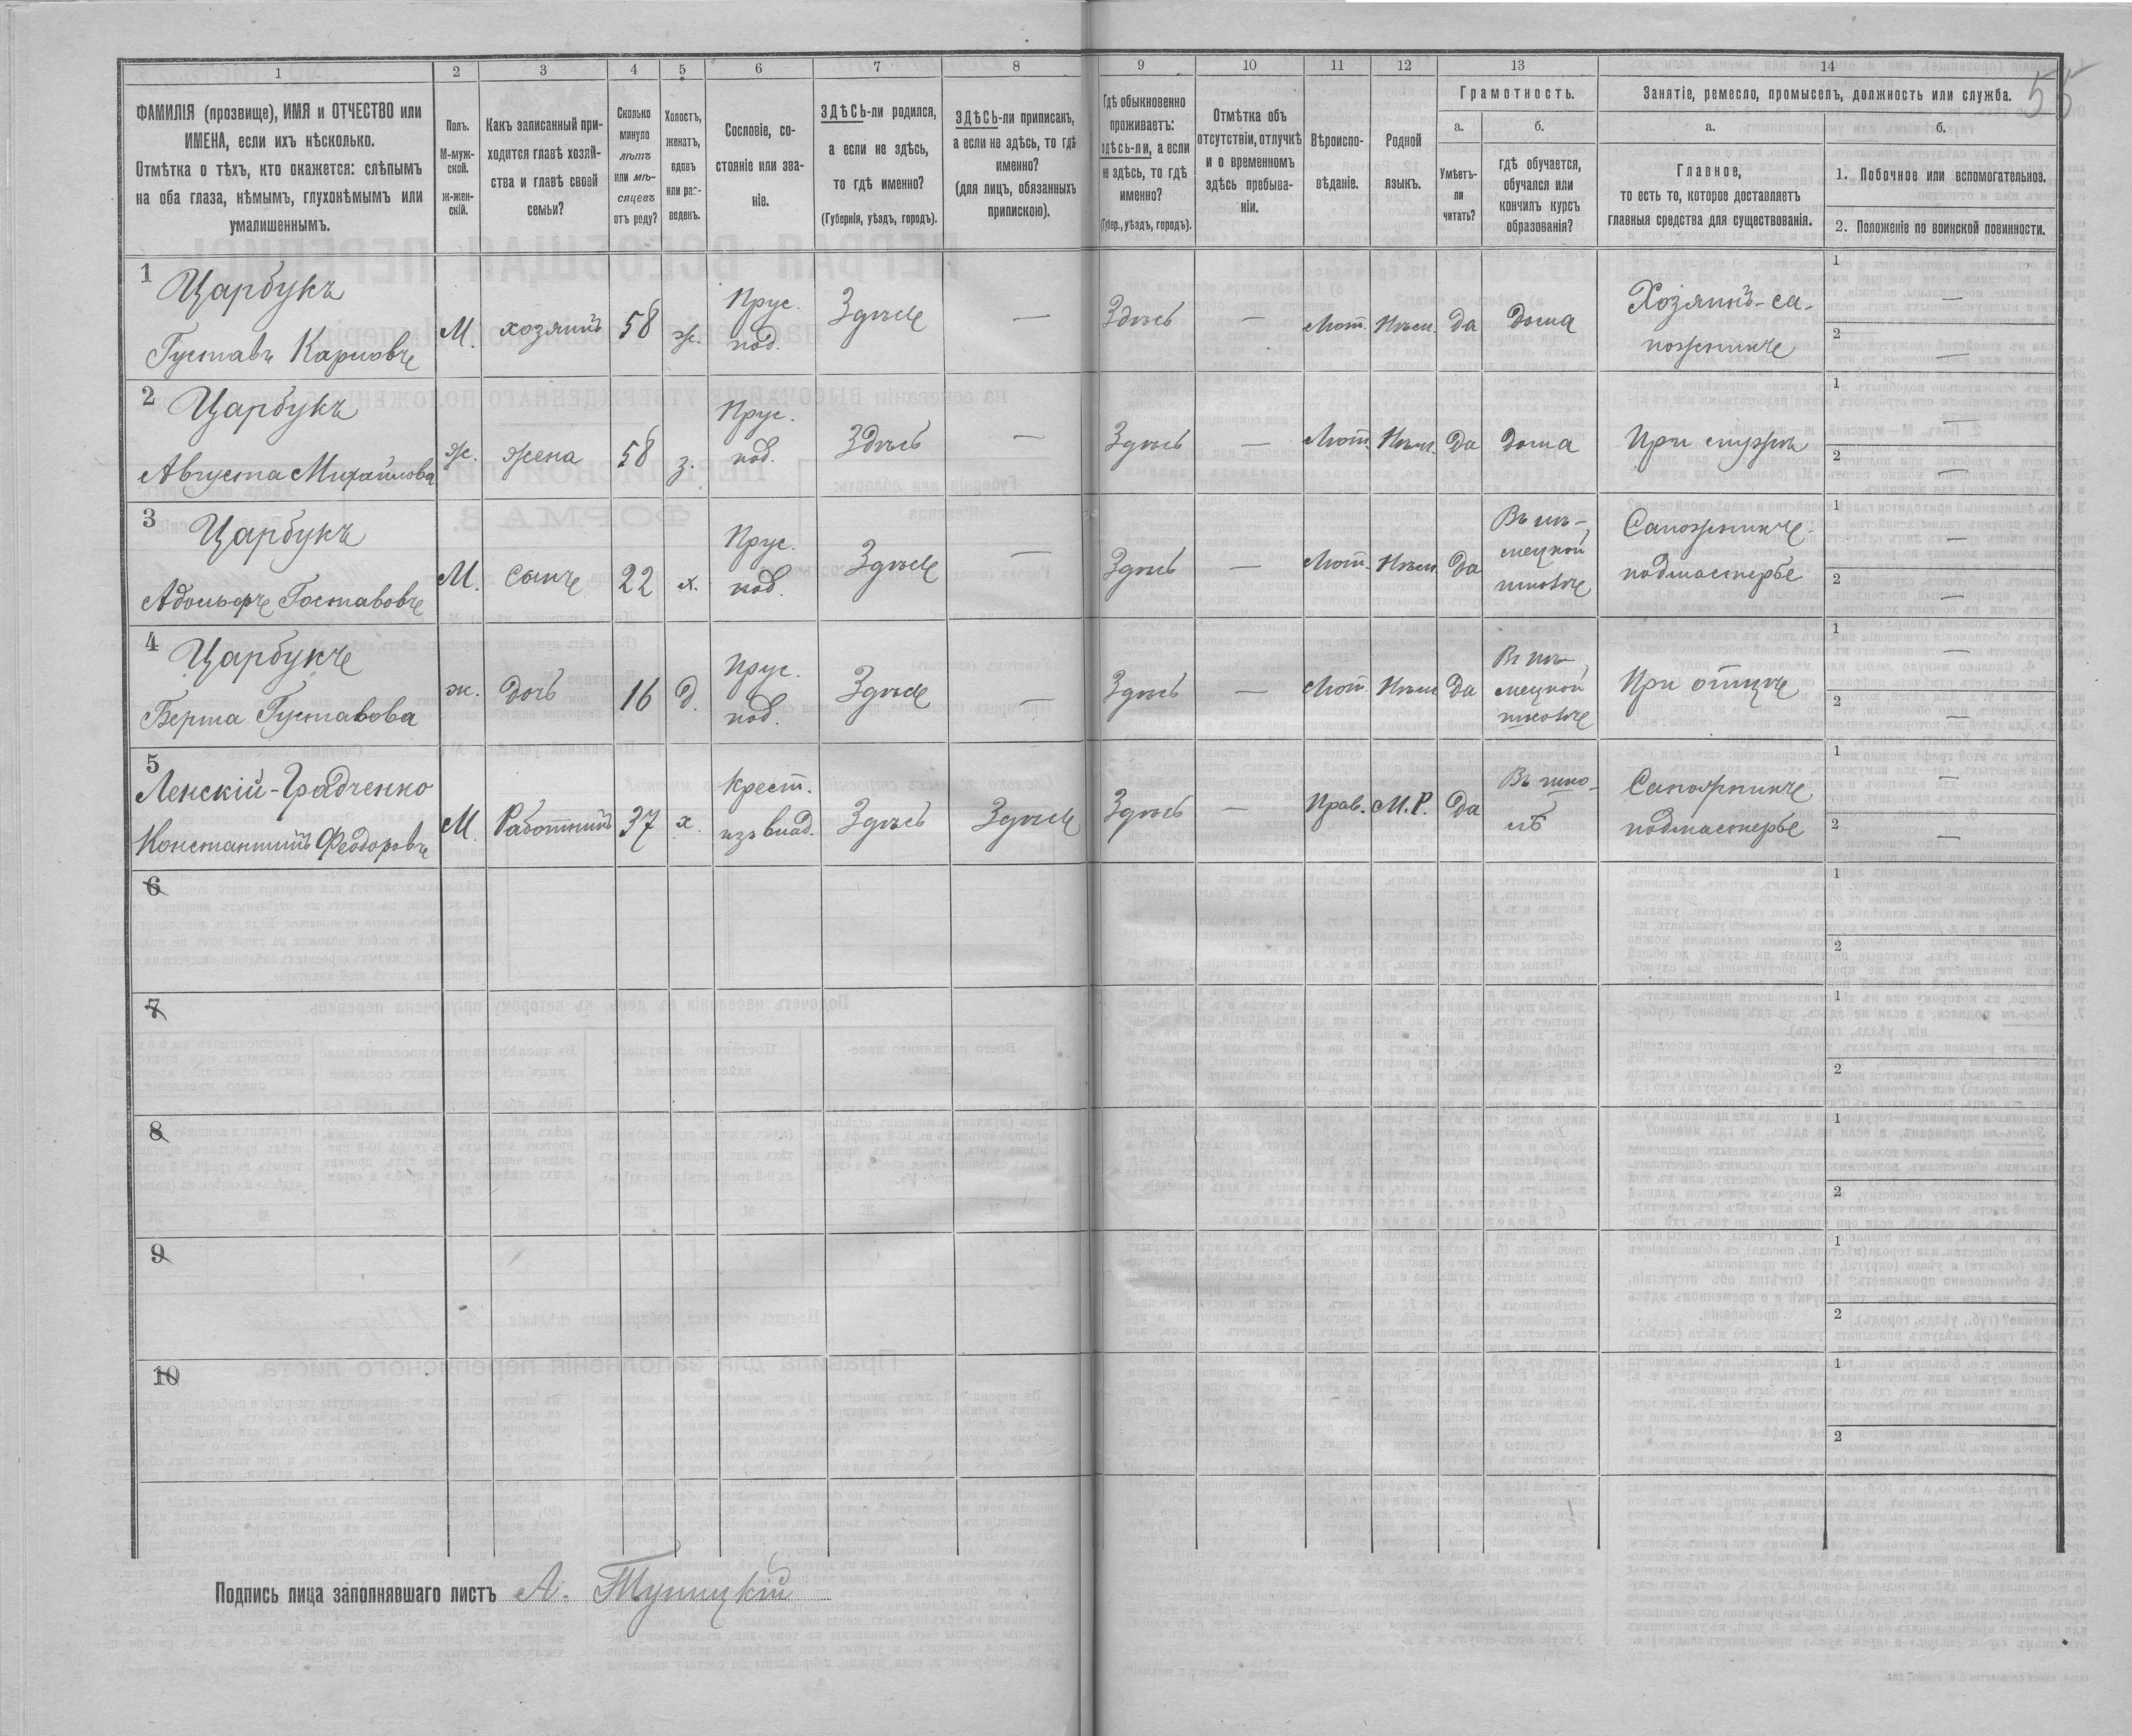 55
1 2 3 4 5 6 7 8 9 10 11 12 13 14
ФАМИЛІЯ (прозвище), ИМЯ и ОТЧЕСТВО или
ИМЕНА, если ихъ нѣсколько.
Отмѣтка о тѣхъ, кто окажется: слѣпымъ
на оба глаза, нѣмымъ, глухонѣмымъ или
умалишеннымъ.
Полъ.
М-муж-
ской.
ж-жен-
скій.
Какъ записанный при-
ходится главѣ хозяй-
ства и главѣ своей
семьи?
Сколько
минуло
лѣтъ
или мѣ-
сяцевъ
отъ роду?
Холостъ,
женатъ,
вдовъ
или раз-
веденъ.
Сословіе, со-
стояніе или зва-
ніе.
ЗДѢСЬ-ли родился,
а если не здѣсь,
то гдѣ именно?
(Губернія, уѣздъ, городъ).
ЗДѢСЬ-ли приписанъ,
а если не здѣсь, то гдѣ
именно?
(для лицъ, обязанныхъ
припискою).
Гдѣ обыкновенно
проживаетъ:
здѣсь-ли, а если
не здѣсь, то гдѣ
именно?
(Губер., уѣздъ, городъ).
Отмѣтка объ
отсутствіи, отлучкѣ
и о временномъ
здѣсь пребыва-
ніи.
Вѣроиспо-
вѣданіе.
Родной
языкъ.
Грамотность.
а.
Умѣетъ-
ли
читать?
б.
гдѣ обучается,
обучался или
кончилъ курсъ
образованія?
Занятіе, ремесло, промыселъ, должность или служба.
а.
Главное,
то есть то, которое доставляетъ
главныя средства для существованія.
б.
1. Побочное или вспомогательное.
2. Положеніе по воинской повинности.
1 Царбукъ Прус. Хозяинъ-са- 1 —
Густавъ Карловъ М. хозяинъ 58 ж. под. Здѣсь — Здѣсь — Лют. Нѣм. Да Дома пожникъ 2 —
2 Царбукъ Прус. 1 —
Августа Михайлова Ж. жена 58 з. под. Здѣсь — Здѣсь — Лют. Нѣм. Да Дома При мужѣ 2 —
3 Царбукъ Прус. Въ нѣ- Сапожникъ- 1 —
мецкой
Адольфъ Гоставовъ М. сынъ 22 х. под. Здѣсь — Здѣсь — Лют. Нѣм. Да школѣ подмастерье 2 —
4 Царбукъ Прус. Въ нѣ- 1 —
мецкой
Берта Густавова ж. дочь 16 д. под. Здѣсь — Здѣсь — Лют. Нѣм. Да школѣ При отцѣ 2 —
5 Ленскій-Градченко Крест. Въ шко- Сапожникъ 1 —
Константинъ Феодоровъ М. Работникъ 37 х. изъ влад. Здѣсь Здѣсь Здѣсь — Прав. М.Р. Да лѣ подмастерье 2 —
6 1
2
7 1
2
8 1
2
9 1
2
10 1
2
Подпись лица заполнявшаго листъ А.